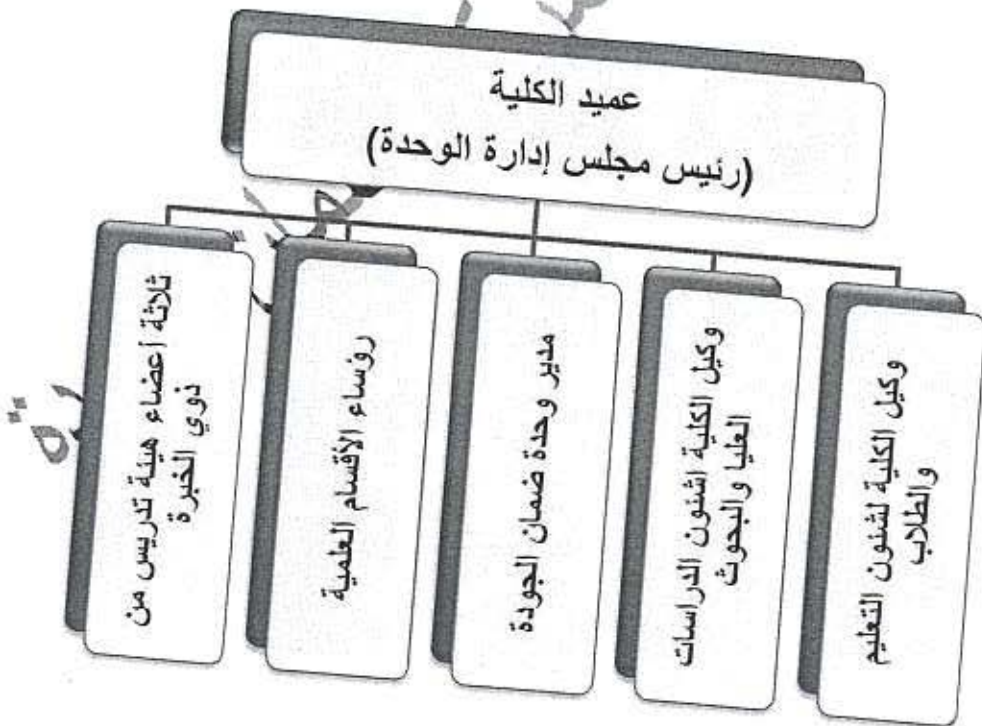 عميد الكلية
(رئيس مجلس إدارة الوحدة)
وكيل الكلية لشئون التعليم
والطلاب
وكيل الكلية اشئون الدراسات
العليا والبحوث
مدير وحدة ضمان الجودة
رؤساء الأقسام العلمية
ثلاثة أعضاء هيئة تدريس من
ذوي الخبرة